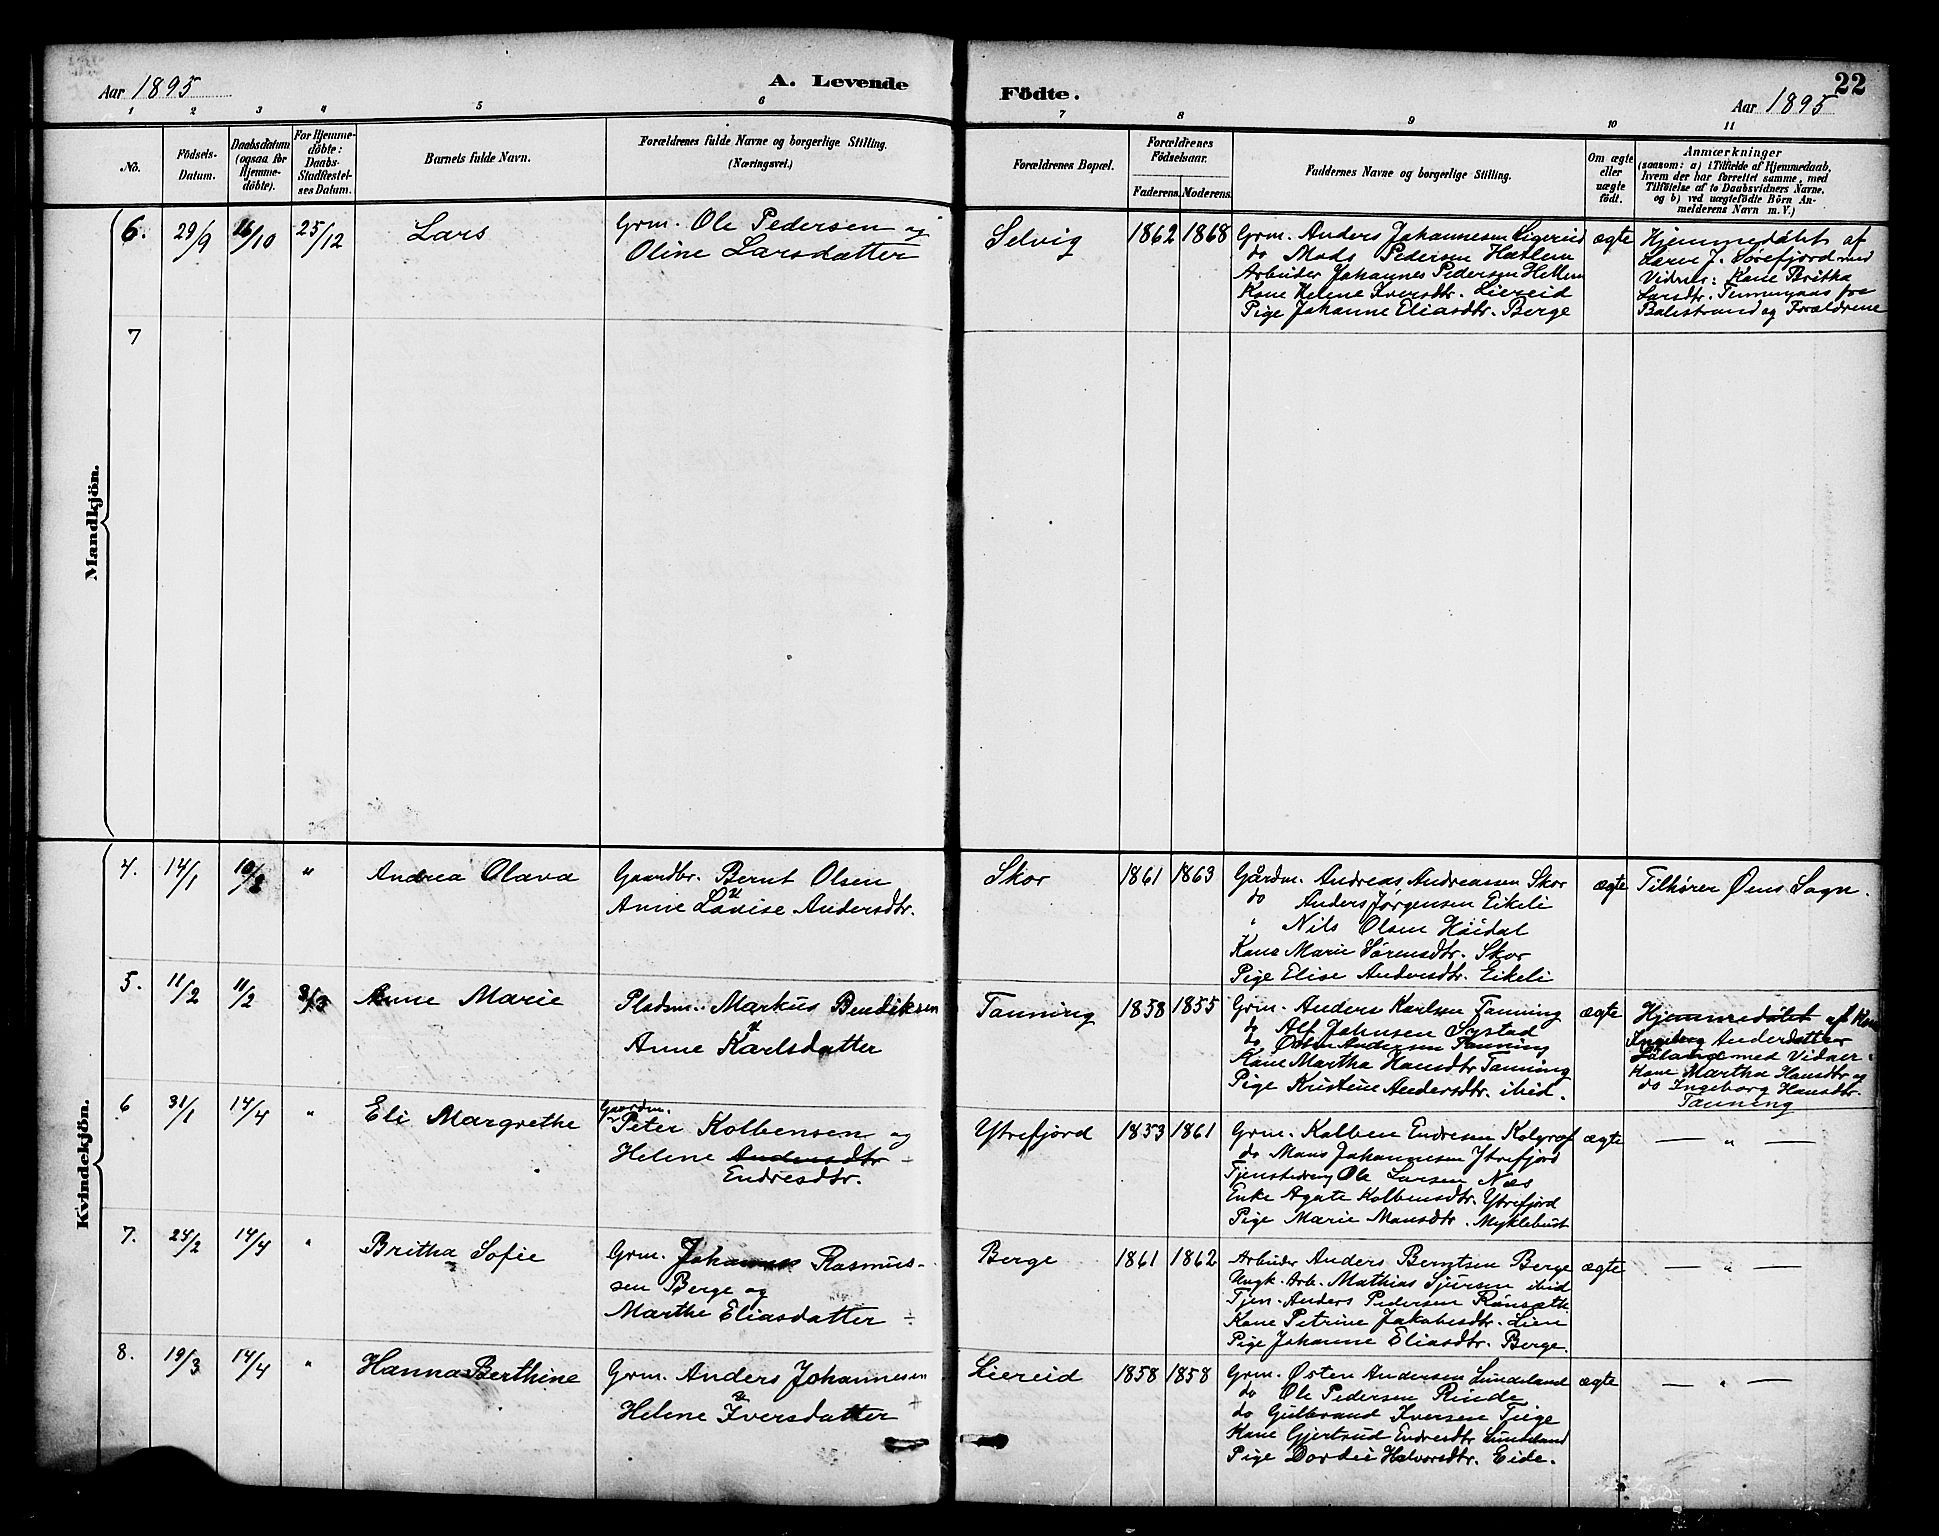 Aar 1895
A. Levende
Födte.
22
Aar 1895
1 2 3 4 5 6 7 8 9 10 11
No.
Födsels-
Datum.
Daabsdatum
(ogsaa for
Hjemme-
döbte).
For Hjemme-
döbte:
Daabs-
Stadfæstel-
ses Datum.
Barnets fulde Navn.
Forældrenes fulde Navne og borgerlige Stilling.
(Næringsvei.)
Forældrenes Bopæl.
Forældrenes
Födselsaar.
Faderens. Moderens.
Faddernes Navne og borgerlige Stilling.
Om ægte
eller
uægte
födt.
Anmærkninger
(saasom: a) i Tilfælde af Hjemmedaab,
hvem der har forrettet samme, med
Tilföielse af to Daabsvidners Navne,
og b) ved uægtefödte Börn An-
melderens Navn m. V.)
Mandkjön.
6. 29/9 26/10 25/12 Lars
Grm. Ole Pedersen og
Oline Larsdatter
Selvig 1862 1868
Grm. Anders Johannesen Ligereid
do Mads Pedersen Hatlem
Arbeider Johannes Pedersen Hellem
Kone Helene Iversdtr. Liereid
Pige Johanne Eliasdtr. Berge
ægte
Hjemmedøbt af
Lærer J. Sørefjord med
Vidner: Kone Britha
Larsdtr. fra
Balestrand og Forældrene
7
Kvindekjön.
4. 14/1 10/2 " Andrea Olava
Gaardbr. Bernt Olsen
Anne Lovise Andersdtr.
Skor 1861 1863
Gårdm. Andreas Andreassen Skor
do Anders Jørgensen Eikeli
" Nils Olsen Høidal
Kone Marie Sørensdtr. Skor
Pige Elise Andersdtr. Eikeli
ægte
Tilhører Øens Sogn.
5. 11/2 11/2 3/3 Anne Marie
Pladsm. Markus Bendiksen
Anne Karlsdatter
Tanning 1858 1855
Grm. Anders Karlsen Tanning
do Alf Johnsen Systad
do Andersen Tanning
Kone Martha Hansdtr Tanning
Pige Kristine Andersdtr. ibid.
ægte
Hjemmedøbt af Kone
Ingeborg Andersdatter
med Vidner:
Kone Martha Hansdtr og
do Ingeborg Hansdtr.
Tanning
6 31/1 14/4 " Eli Margrethe
Gaardm.
Peter Kolbensen og
Helene Andersdtr
Endresdtr.
Ytrefjord 1853 1861
Grm. Kolben Endresen Kolgrof
do Mons Johannesen Ytrefjord
Tjenstedreng Ole Larsen Næs
Enke Agate Kolbensdtr. Ytrefjord
Pige Marie Monsdtr. Myklebust
ægte
— " —
7. 24/2 14/4 " Britha Sofie
Grm. Johannes Rasmus-
sen Berge og
Marthe Eliasdatter
Berge 1861 1862
Arbeider Anders Berntsen Berge
Ungk. Arb. Mathias Sjursen ibid
Tjen. Anders Pedersen
Kone Petrine Jakobsdtr. Lien
Pige Johanne Eliasdtr. Berge.
ægte
— " —
8. 19/3 14/4 " Hanna Berthine
Grm. Anders Johannesen
Helene Iversdatter
Liereid 1858 1858
Grm. Østen Andersen Lundeland
do Ole Pedersen Rinde
do Gulbrand Iversen Tuge
Kone Gjertrud Endresdtr Lundeland
Pige Dordei Halvorsdtr. Eide.
ægte
— " —